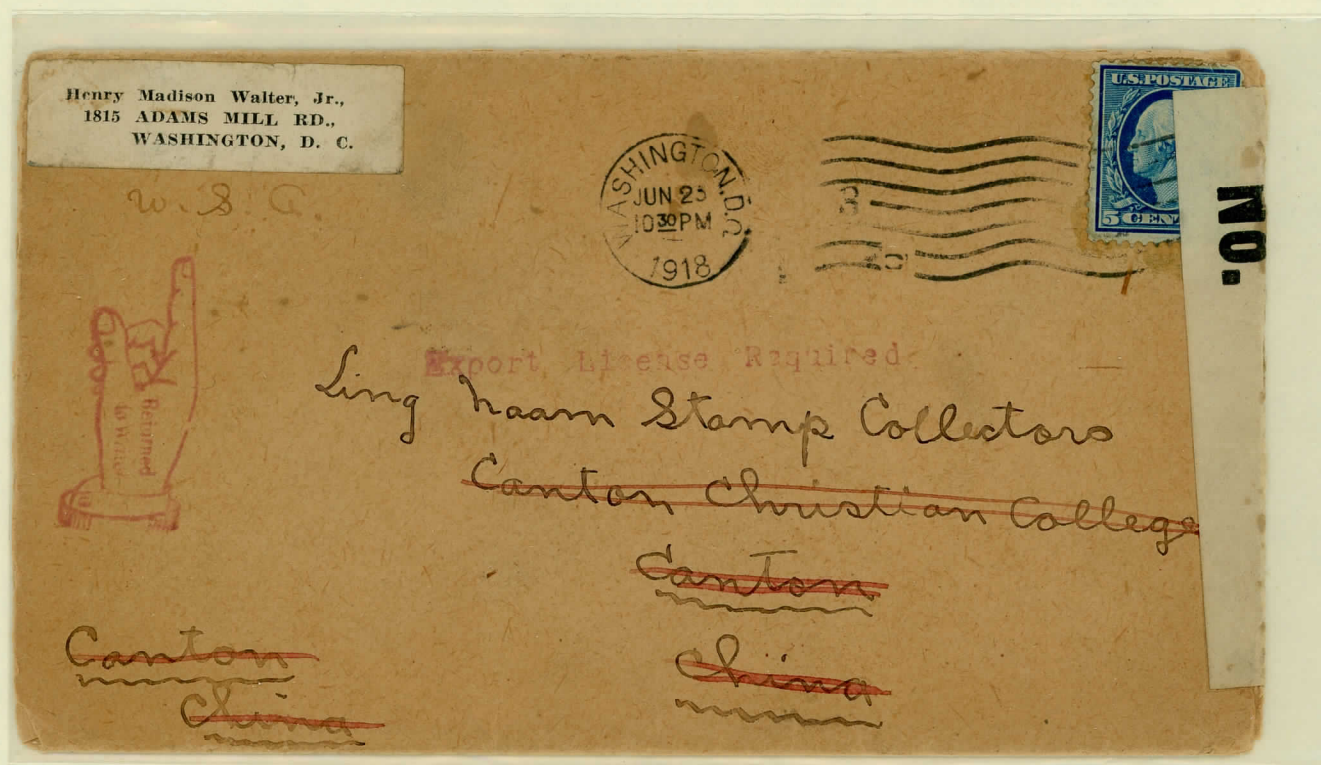 Henry Madison Walter, Jr.,
1815 ADAMS MILL RD.,
WASHINGTON, D. C.
U. S. A.
WASHINGTON, D.C.
JUN 25
10 30 PM
1918
U.S. POSTAGE
5 CENT
NO.
Export License Required
Returned
to Writer
Ling Naam Stamp Collectors
Canton Christian College
Canton
China
Canton
China